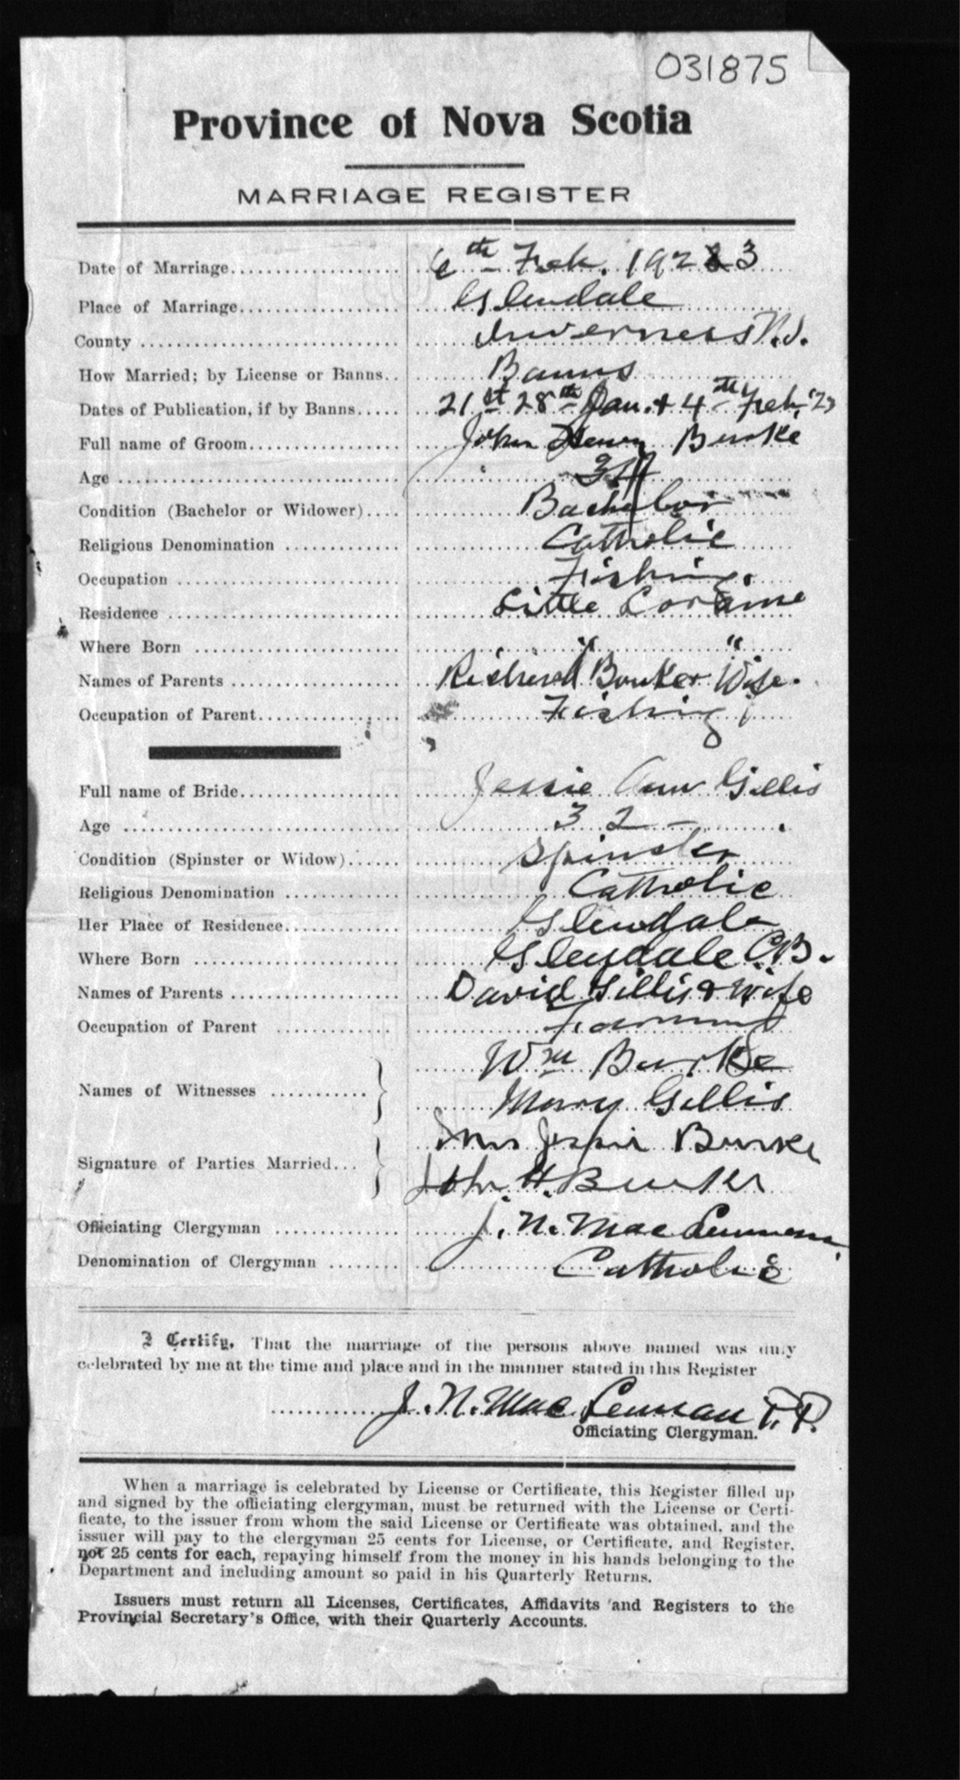 031875
Province of Nova Scotia
MARRIAGE REGISTER
Date of Marriage.................... 6th Feb. 1923
Place of Marriage................... Glendale
County .............................. Inverness N.S.
How Married; by License or Banns.. Banns
Dates of Publication, if by Banns..... 21st 28th Jan. & 4th Feb '23
Full name of Groom.................. John Henry Burke
Age .................................
Condition (Bachelor or Widower).... Bachelor
Religious Denomination ............. Catholic
Occupation ......................... Fishing.
Residence .......................... Little Loraine
Where Born ........................ " "
Names of Parents ................... Richard Burke & Wife.
Occupation of Parent................ Fishing
Full name of Bride.................. Jessie Ann Gillis
Age ................................ 32 –
Condition (Spinster or Widow)...... Spinster
Religious Denomination ............. Catholic
Her Place of Residence.............. Glendale
Where Born ........................ Glendale C.B.
Names of Parents ................... David Gillis & Wife
Occupation of Parent .............. Farming
Wm Burke
Names of Witnesses ...........
Mary Gillis
Mrs Jessie Burke
Signature of Parties Married...
John H. Burke
Officiating Clergyman .............. J. N. MacLennan
Denomination of Clergyman ........ Catholic
I Certify, That the marriage of the persons above named was duly
celebrated by me at the time and place and in the manner stated in this Register
J. N. MacLennan P.P.
Officiating Clergyman.
When a marriage is celebrated by License or Certificate, this Register filled up
and signed by the officiating clergyman, must be returned with the License or Certi-
ficate, to the issuer from whom the said License or Certificate was obtained, and the
issuer will pay to the clergyman 25 cents for License, or Certificate, and Register,
not 25 cents for each, repaying himself from the money in his hands belonging to the
Department and including amount so paid in his Quarterly Returns.
Issuers must return all Licenses, Certificates, Affidavits and Registers to the
Provincial Secretary's Office, with their Quarterly Accounts.